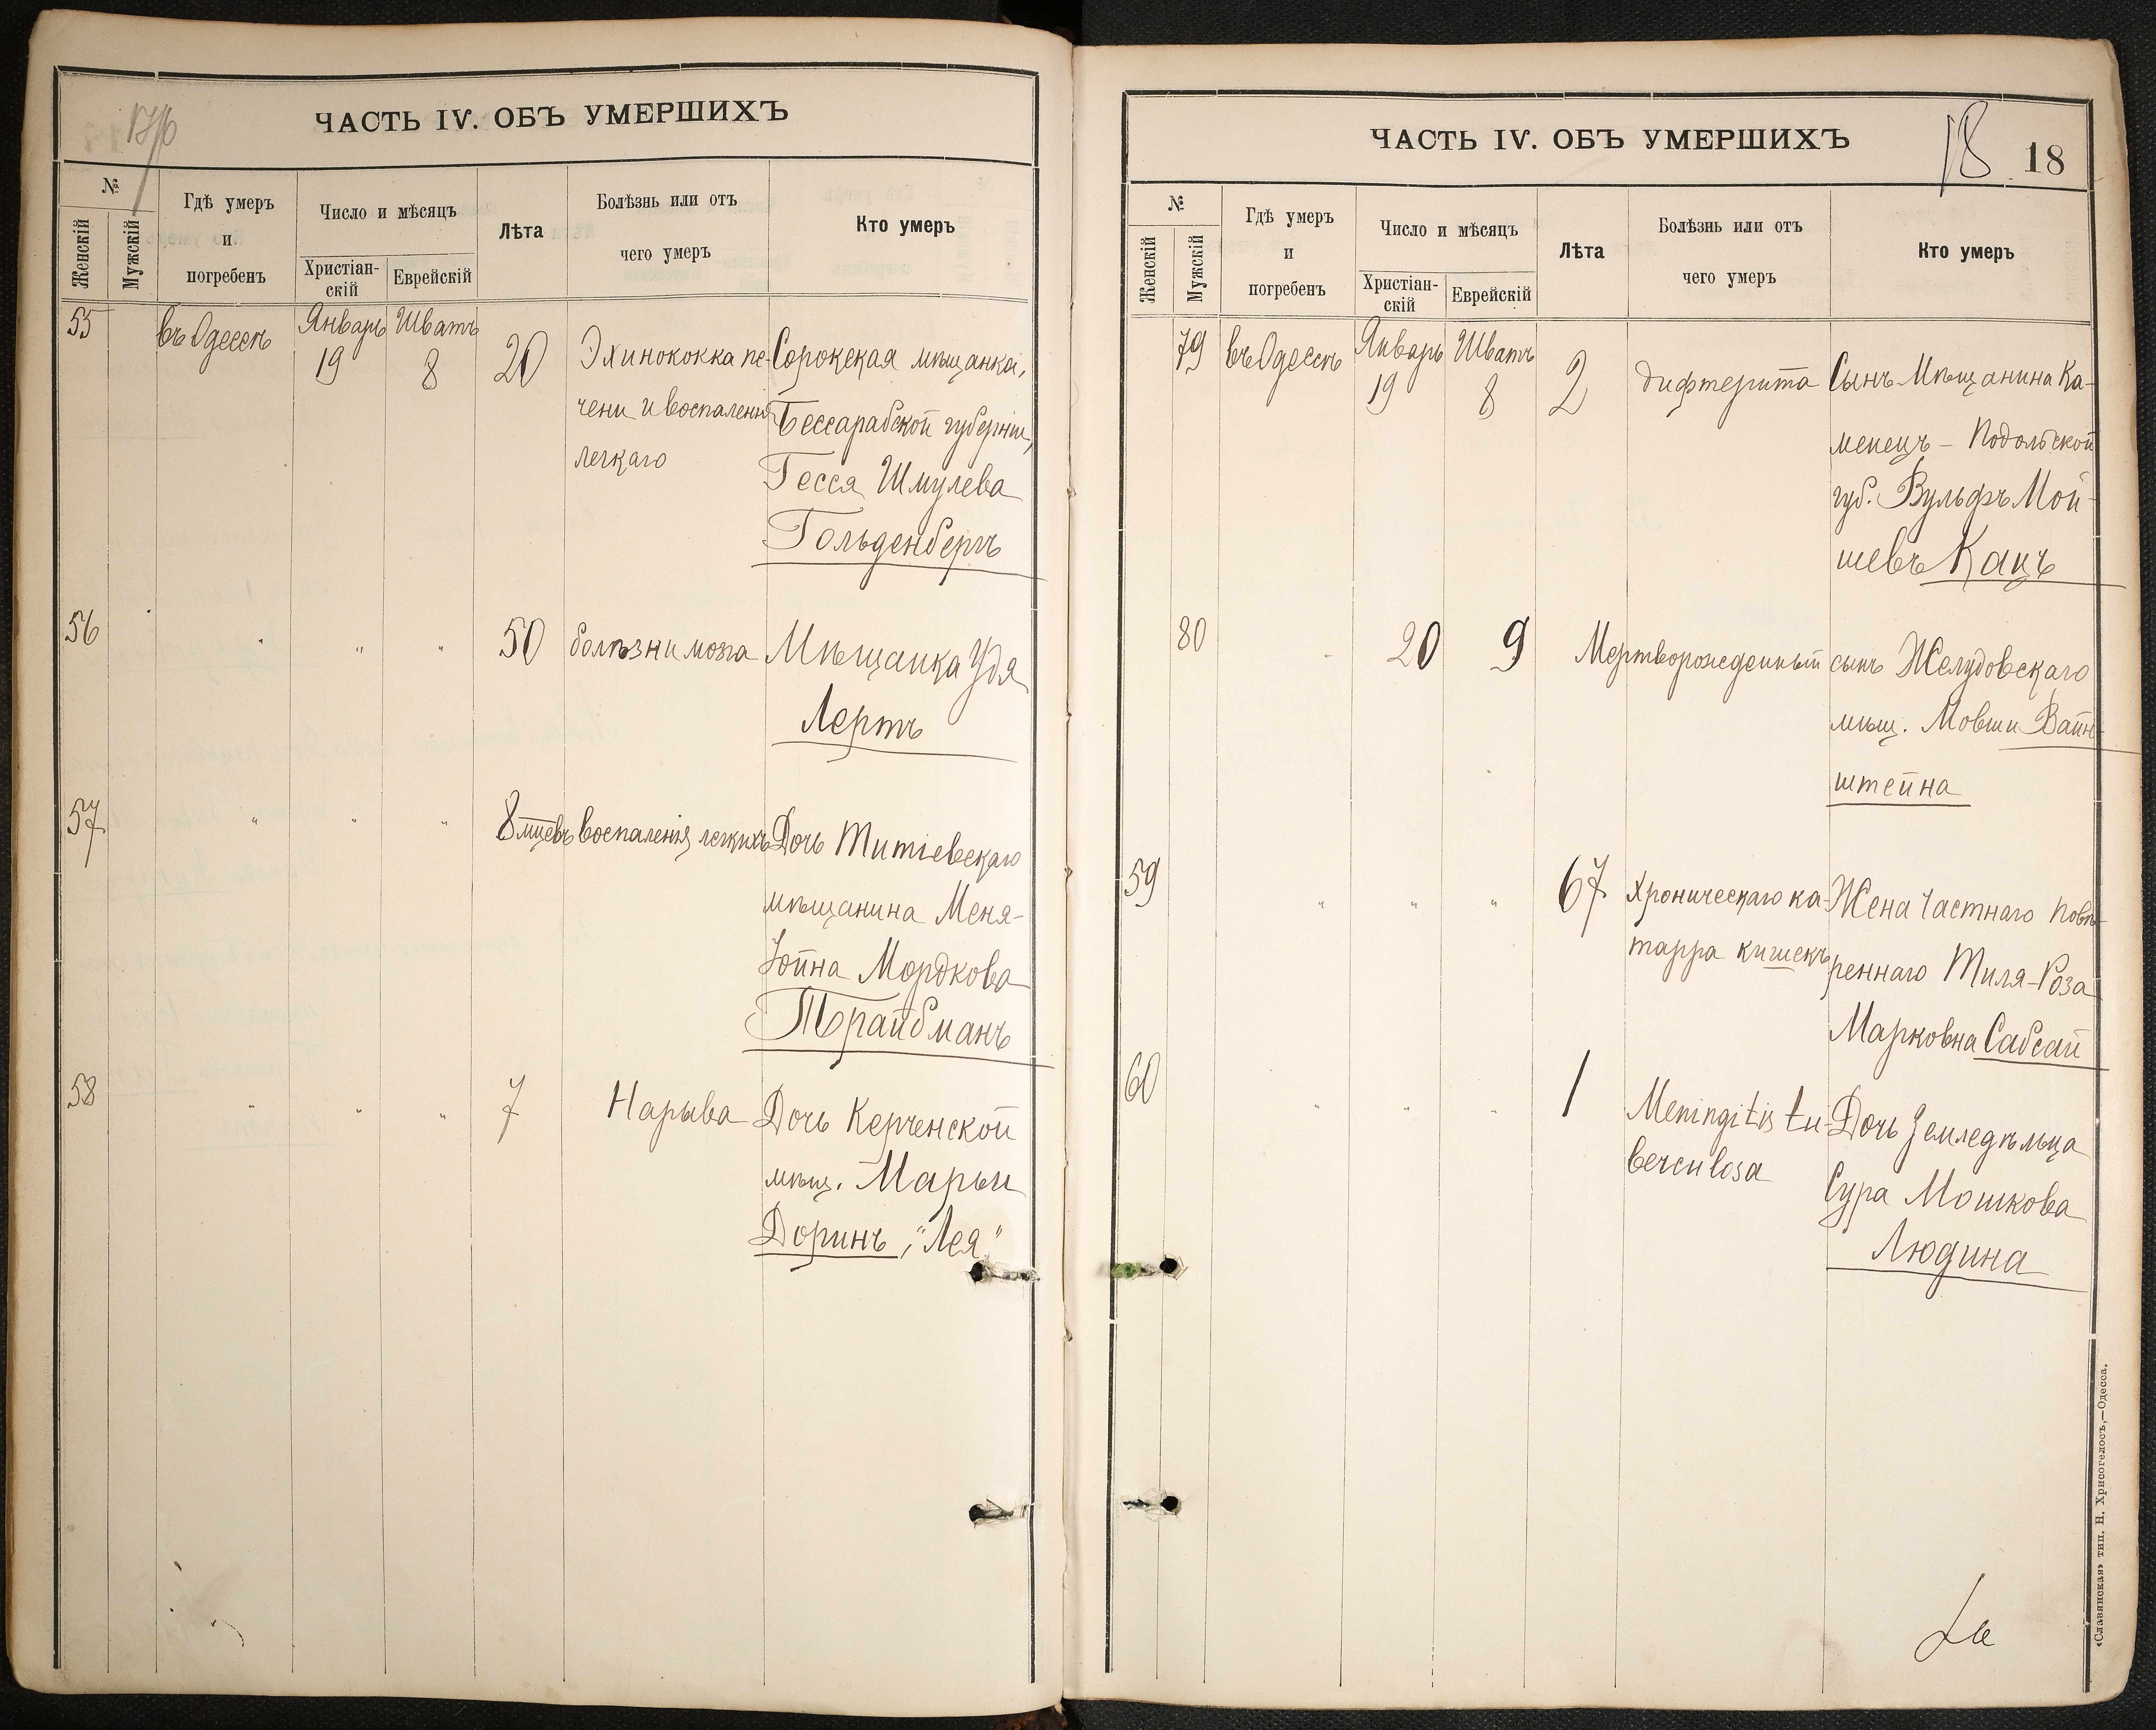 ЧАСТЬ IV. ОБЪ УМЕРШИХЪ
№
Женскій
Мужскій
Гдѣ умеръ
и
погребенъ
Число и мѣсяцъ
Христіан-
скій
Еврейскій
Лѣта
Болѣзнь или отъ
чего умеръ
Кто умеръ
55
въ Одессѣ
Январь
19
Шватъ
8
20
Эхинококка пе-
чени и воспаленія
легкаго
Сорокская мѣщанка,
Бессарабской губерніи,
Гесся Шмулева
Гольденбергъ
56
" " "
50
болѣзни мозга
Мѣщанка Удя
Лертъ
57
" " "
8 мцевъ
воспаленія легкихъ
Дочь Титіевскаго
мѣщанина Меня-
Юйна Мордкова
Трайбманъ
58
" " "
7
Нарыва
Дочь Керченской
мѣщ. Марьи
Доринъ, "Лея"
ЧАСТЬ IV. ОБЪ УМЕРШИХЪ
18
18
№
Женскій
Мужскій
Гдѣ умеръ
и
погребенъ
Число и мѣсяцъ
Христіан-
скій
Еврейскій
Лѣта
Болѣзнь или отъ
чего умеръ
Кто умеръ
79
въ Одессѣ
Январь
19
Шватъ
8
2
дифтерита
Сынъ Мѣщанина Ка-
менецъ-Подольской
губ. Вульфъ Мой-
шевъ Кацъ
80
"
20
9
Мертворожденный
сынъ Желудовскаго
мѣщ. Мовши Вайн-
штейна
59
" " "
67
Хроническаго ка-
тарра кишекъ
Жена Частнаго Повѣ-
реннаго Тиля-Роза
Марковна Сабсай
60
" " "
1
Meningitis tu-
berculosa
Дочь Земледѣльца
Сура Мошкова
Людина
«Славянская» тип. Н. Хрисогелосъ,—Одесса.